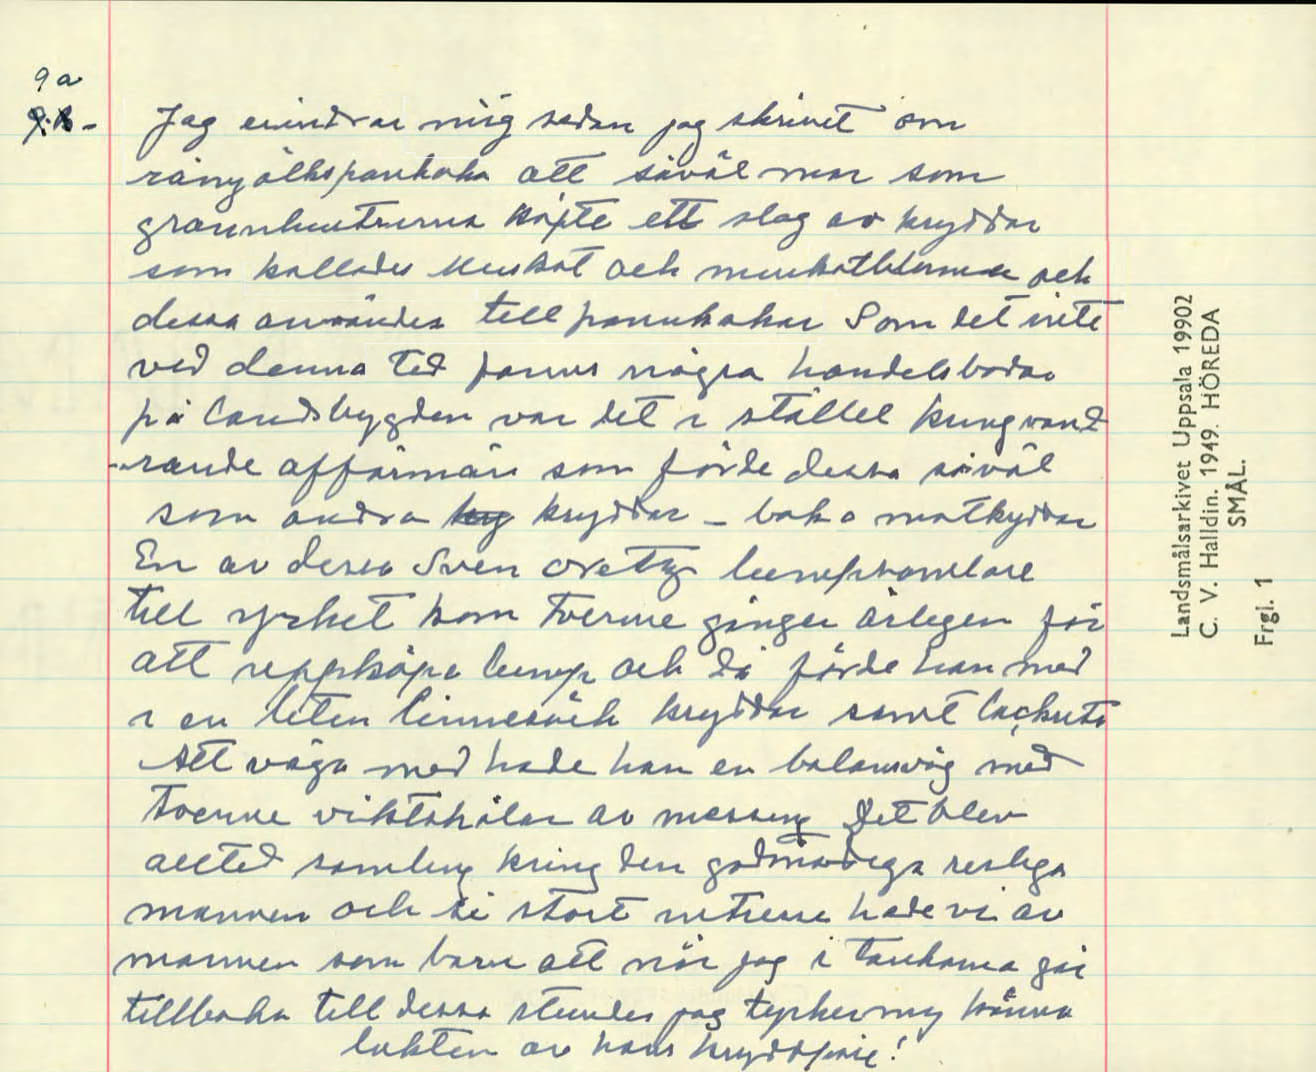 9a
Jag erindrar mig sedan jag skrivet om
råmjölkspankaka att såväl mor som
grannhustrurna köpte ett slag av kryddor
som kallades Muskot och muskotblomma och
dessa användes till pannkakar Som det inte
ved denna tid fanns några handelsbodar
på landsbygden var det i stället kringvand
-rande affärmän som förde dessa såväl
som andra kryddor - bak o matkyddor
En av dessa Sven lumpsamlare
till yrket kom tvenne gånger årlegen för
att uppköpa lump och då förde han med
i en liten linnesäck kryddor samt
Att väga med hade han en balansvåg med
tvenne viktskålar av messing Det blev
alltid samling kring den godmodiga resliga
mannen och så stort intresse hade vi av
mannen som barn att när jag i tankarna går
tillbaka till dessa stunder jag tycker mig känna
lukten av hans kryddpåse!
Landsmålsarkivet Uppsala 19902
C. V. Halldin. 1949. HÖREDA
SMÅL.
Frgl. 1